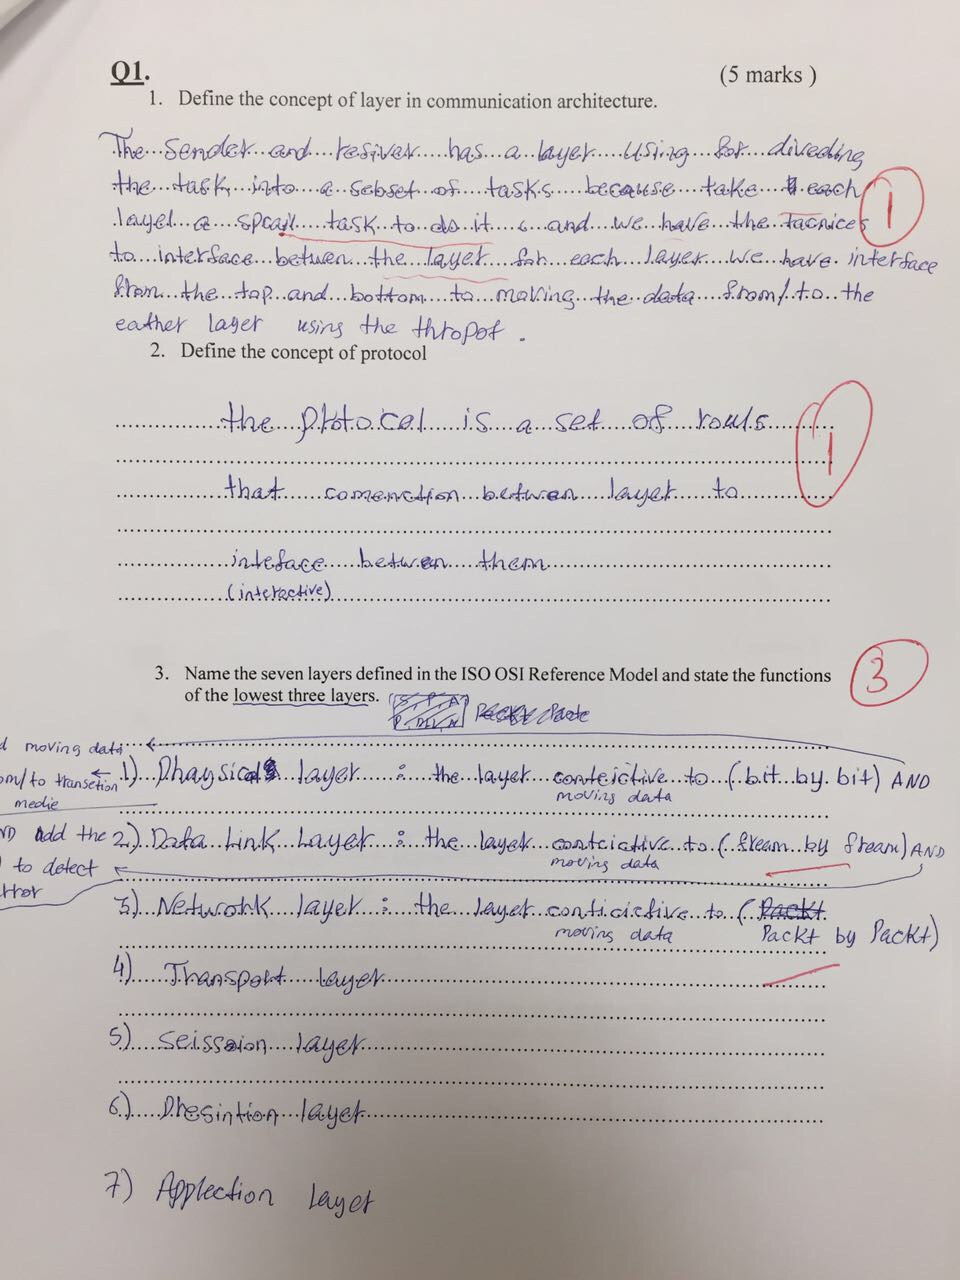 Q1. (5 marks )
1. Define the concept of layer in communication architecture.
The sender and resiver has a layer using for diveding
the task into a sebset of tasks because take each
layer a spcail task to do it and we have the tacnices
to interface betwen the layer for each layer we have interface
from the top and bottom to moving the data from/to the
eather layer using the thropot.
1
2. Define the concept of protocol
the prtocel is a set of rouls
that comenction betwen layer to
inteface betwen them
(interactive)
1
3. Name the seven layers defined in the ISO OSI Reference Model and state the functions
of the lowest three layers.
3
moving data
1) Phaysical layer : the layer conteictive to (bit by bit) AND
om/to transetion
moving data
medie
2) Data Link Layer : the layer conteictive to (fream by fream) AND
ND add the
moving data
to detect
error
3) Network layer : the layer conticictive to (
moving data Packt by Packt)
4) Transport layer
5) seission layer
6) Presintion layer
7) Applection layer